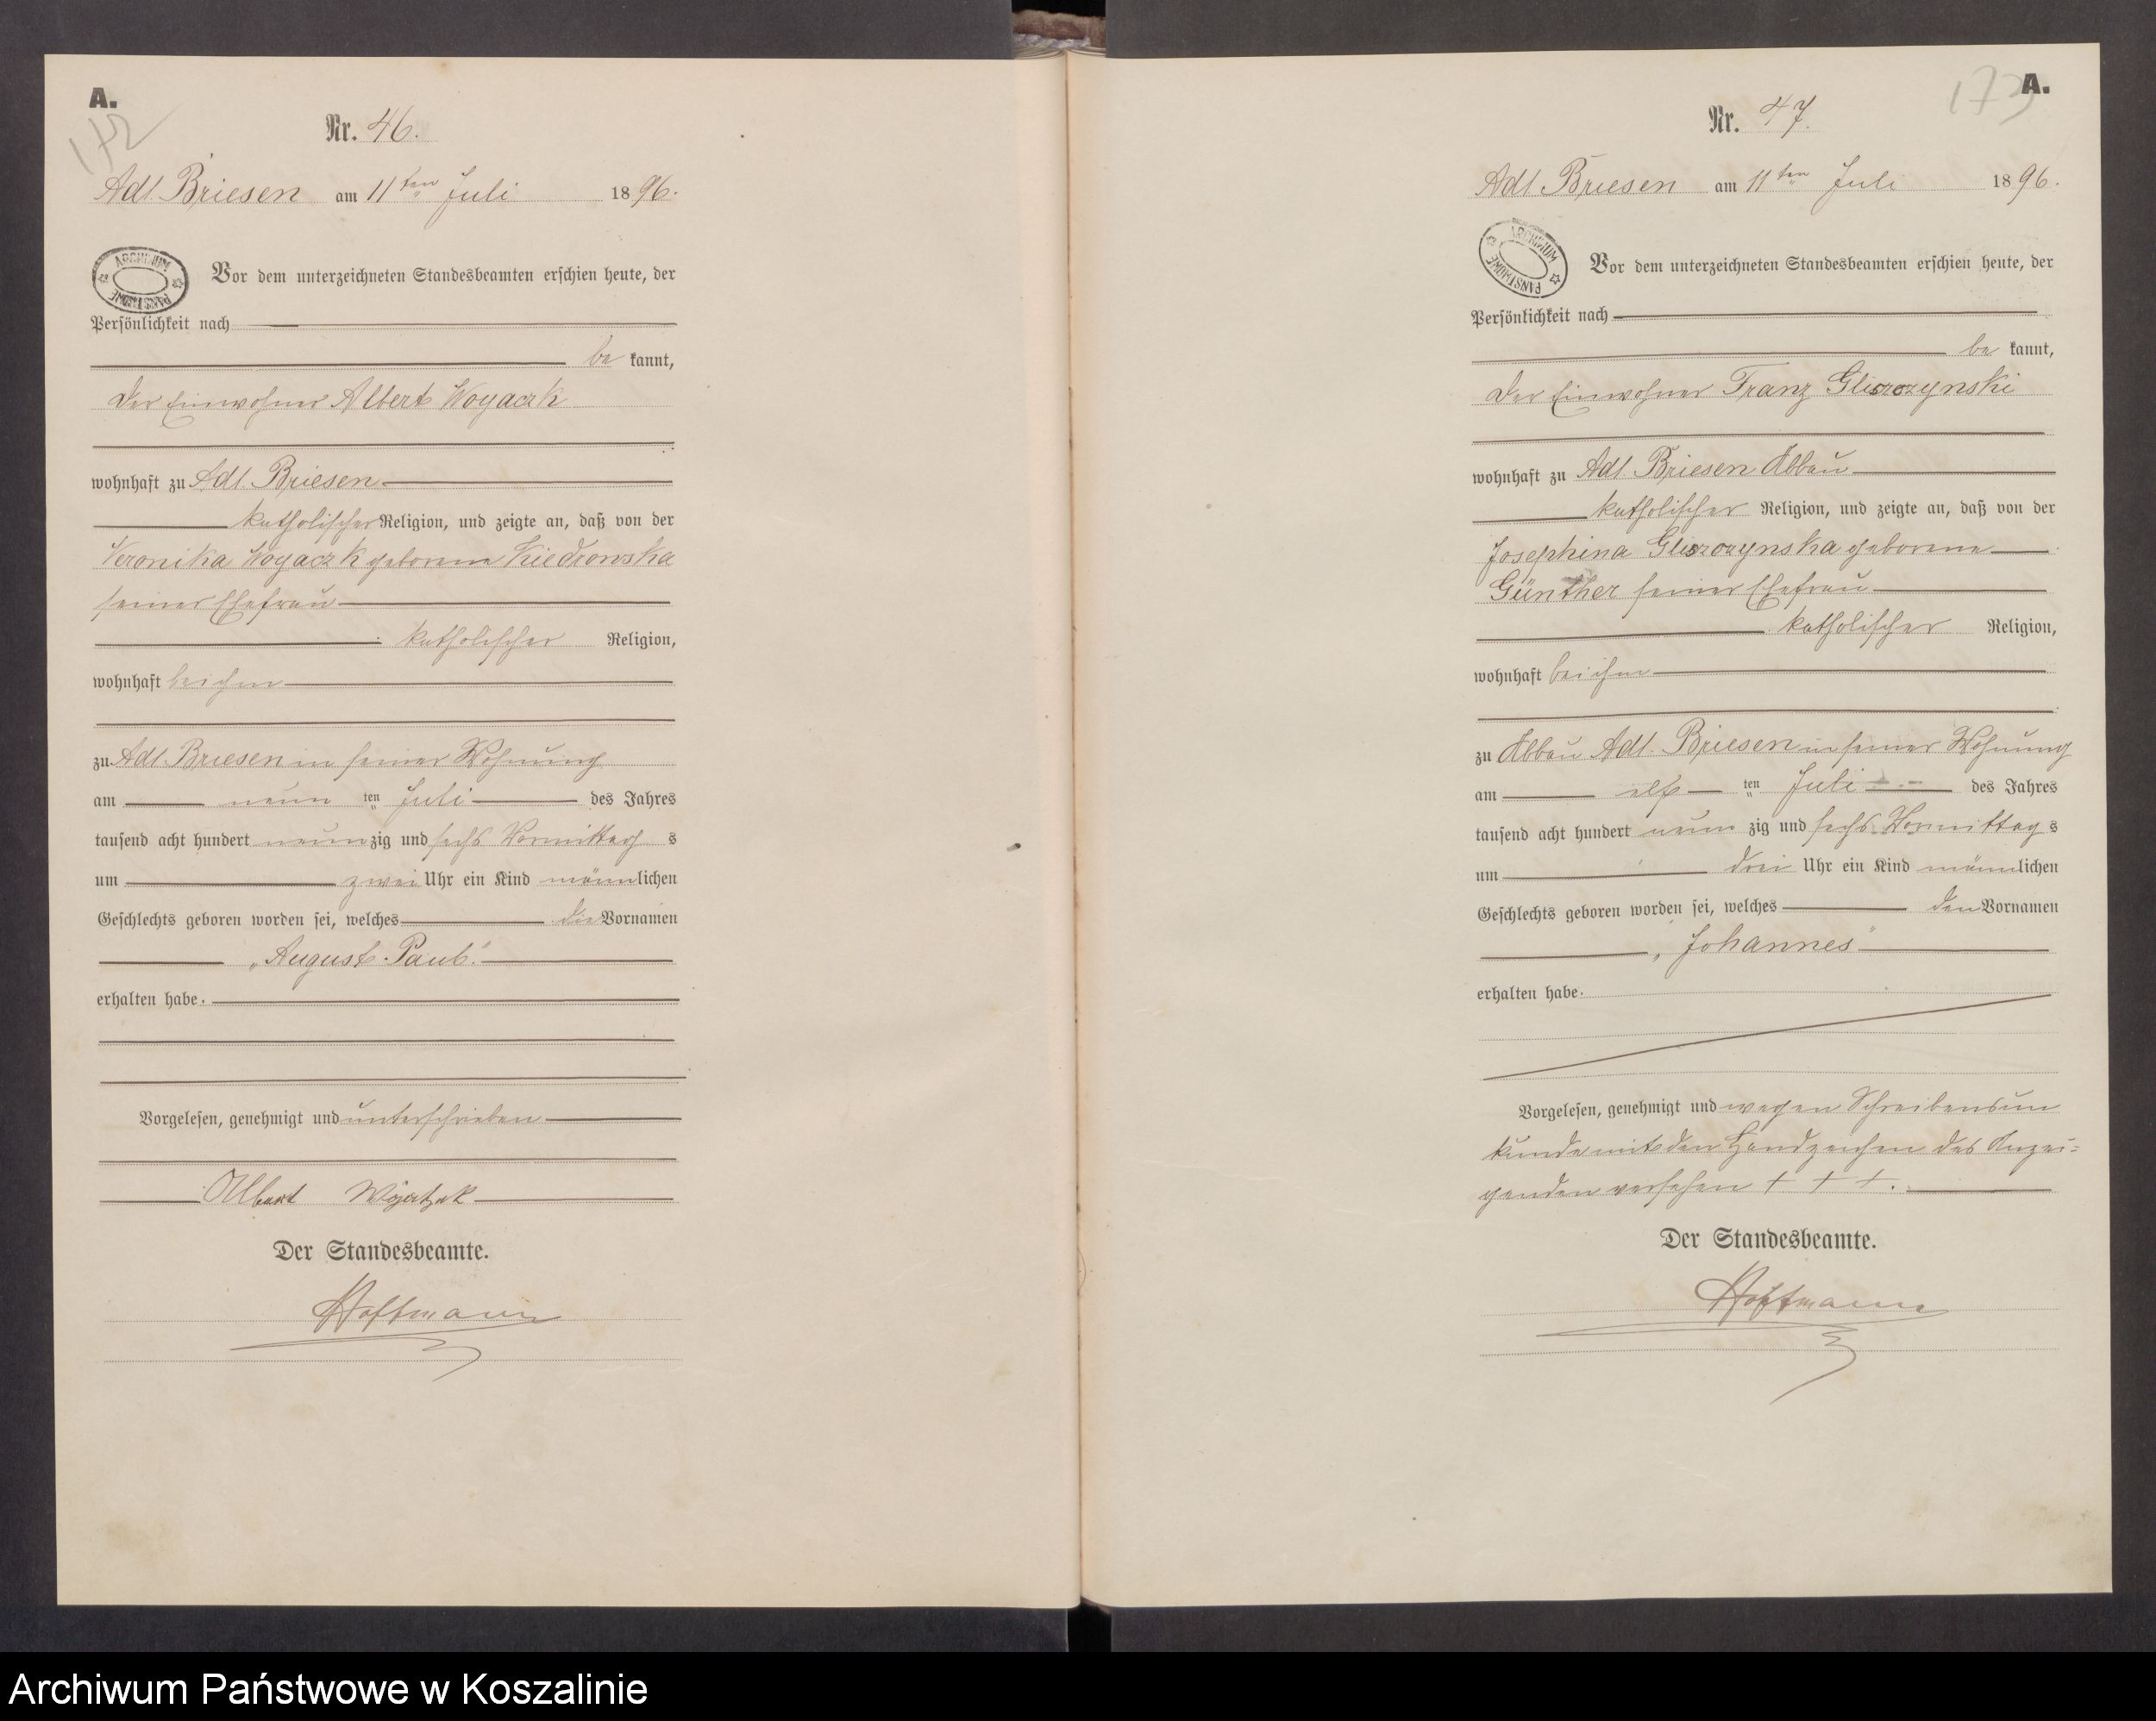 A.
172
Nr. 46.
Adl. Briesen am 11ten Juli 1896.
ARCHIWUM PAŃSTWOWE
Vor dem unterzeichneten Standesbeamten erschien heute, der
Persönlichkeit nach
be kannt,
der Einwohner Albert Wogaczk
wohnhaft zu Adl. Briesen
katholischer Religion, und zeigte an, daß von der
Veronika Wogaczk geborene Kiedrowska
seiner Ehefrau
katholischer Religion,
wohnhaft bei ihm
zu Adl. Briesen in seiner Wohnung
am neun ten Juli des Jahres
tausend acht hundert neunzig und sechs Vormittag s
um zwei Uhr ein Kind männlichen
Geschlechts geboren worden sei, welches die Vornamen
„August Paul“
erhalten habe.
Vorgelesen, genehmigt und unterschrieben
Albert
Der Standesbeamte.
Hoffmann
A.
173
Nr. 47.
Adl. Briesen am 11ten Juli 1896.
ARCHIWUM PAŃSTWOWE
Vor dem unterzeichneten Standesbeamten erschien heute, der
Persönlichkeit nach
be kannt,
der Einwohner Franz
wohnhaft zu Adl. Briesen Abbau
katholischer Religion, und zeigte an, daß von der
Josephina geborene
Günther seiner Ehefrau
katholischer Religion,
wohnhaft bei ihm
zu Abbau Adl. Briesen in seiner Wohnung
am elf ten Juli des Jahres
tausend acht hundert neun zig und sechs Vormittag s
um drei Uhr ein Kind männlichen
Geschlechts geboren worden sei, welches den Vornamen
„Johannes“
erhalten habe.
Vorgelesen, genehmigt und wegen Schreibensun
kunde mit den Handzeichen des Anzei=
genden versehen + + +.
Der Standesbeamte.
Hoffmann
Archiwum Państwowe w Koszalinie